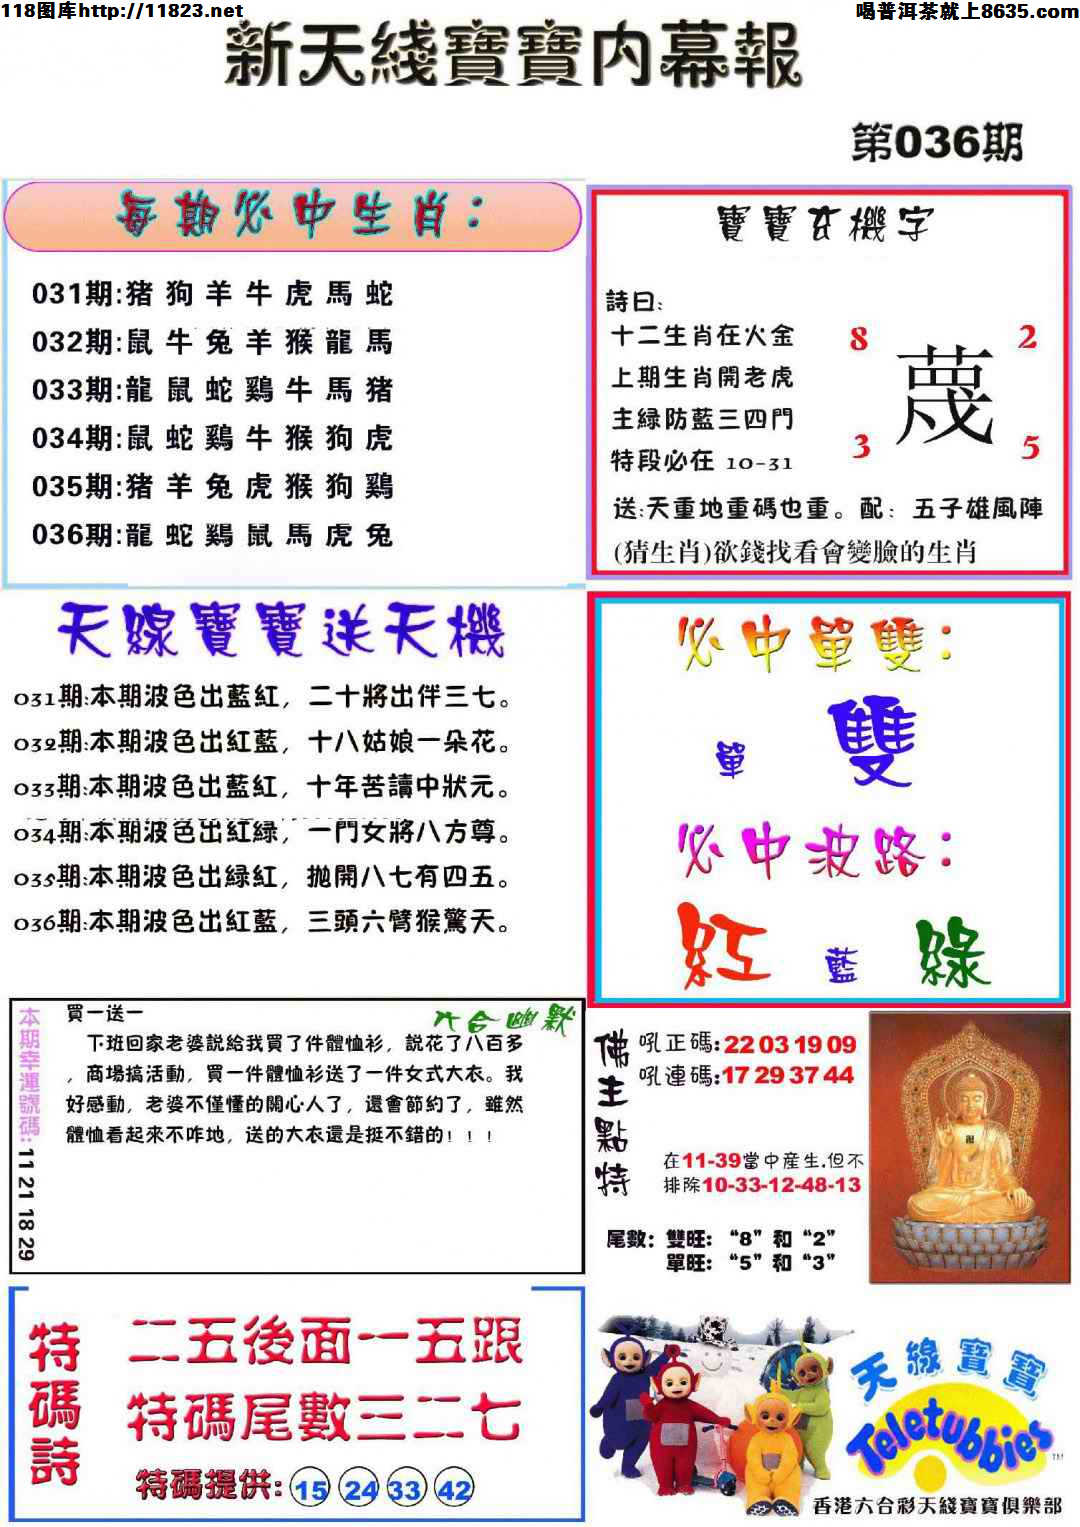 118图库http://11823.net
喝普洱茶就上8635.com
新天綫寶寶内幕報
第036期
每期必中生肖：
031期:猪狗羊牛虎馬蛇
032期:鼠牛兔羊猴龍馬
033期:龍鼠蛇鷄牛馬猪
034期:鼠蛇鷄牛猴狗虎
035期:猪羊兔虎猴狗鷄
036期:龍蛇鷄鼠馬虎兔
寶寶玄機字
詩曰:
十二生肖在火金
上期生肖開老虎
主緑防藍三四門
特段必在 10-31
8 2
蔑
3 5
送:天重地重碼也重。配：五子雄風陣
(猜生肖)欲錢找看會變臉的生肖
天線寶寶送天機
031期:本期波色出藍紅，二十將出伴三七。
032期:本期波色出紅藍，十八姑娘一朵花。
033期:本期波色出藍紅，十年苦讀中狀元。
034期:本期波色出紅緑，一門女將八方尊。
035期:本期波色出緑紅，拋開八七有四五。
036期:本期波色出紅藍，三頭六臂猴驚天。
必中單雙：
單 雙
必中波路：
紅 藍 綠
本期幸運號碼:11 21 18 29
六合幽默
買一送一
下班回家老婆説給我買了件體恤衫，説花了八百多
，商場搞活動，買一件體恤衫送了一件女式大衣。我
好感動，老婆不僅懂的關心人了，還會節約了，雖然
體恤看起來不咋地，送的大衣還是挺不錯的！！！
佛主點特
吼正碼:22 03 19 09
吼連碼:17 29 37 44
在11-39當中産生,但不
排除10-33-12-48-13
尾數：雙旺：“8”和“2”
單旺：“5”和“3”
特碼詩
二五後面一五跟
特碼尾數三二七
特碼提供: 15 24 33 42
天線寶寶
Teletubbies
TM
香港六合彩天綫寶寶俱樂部